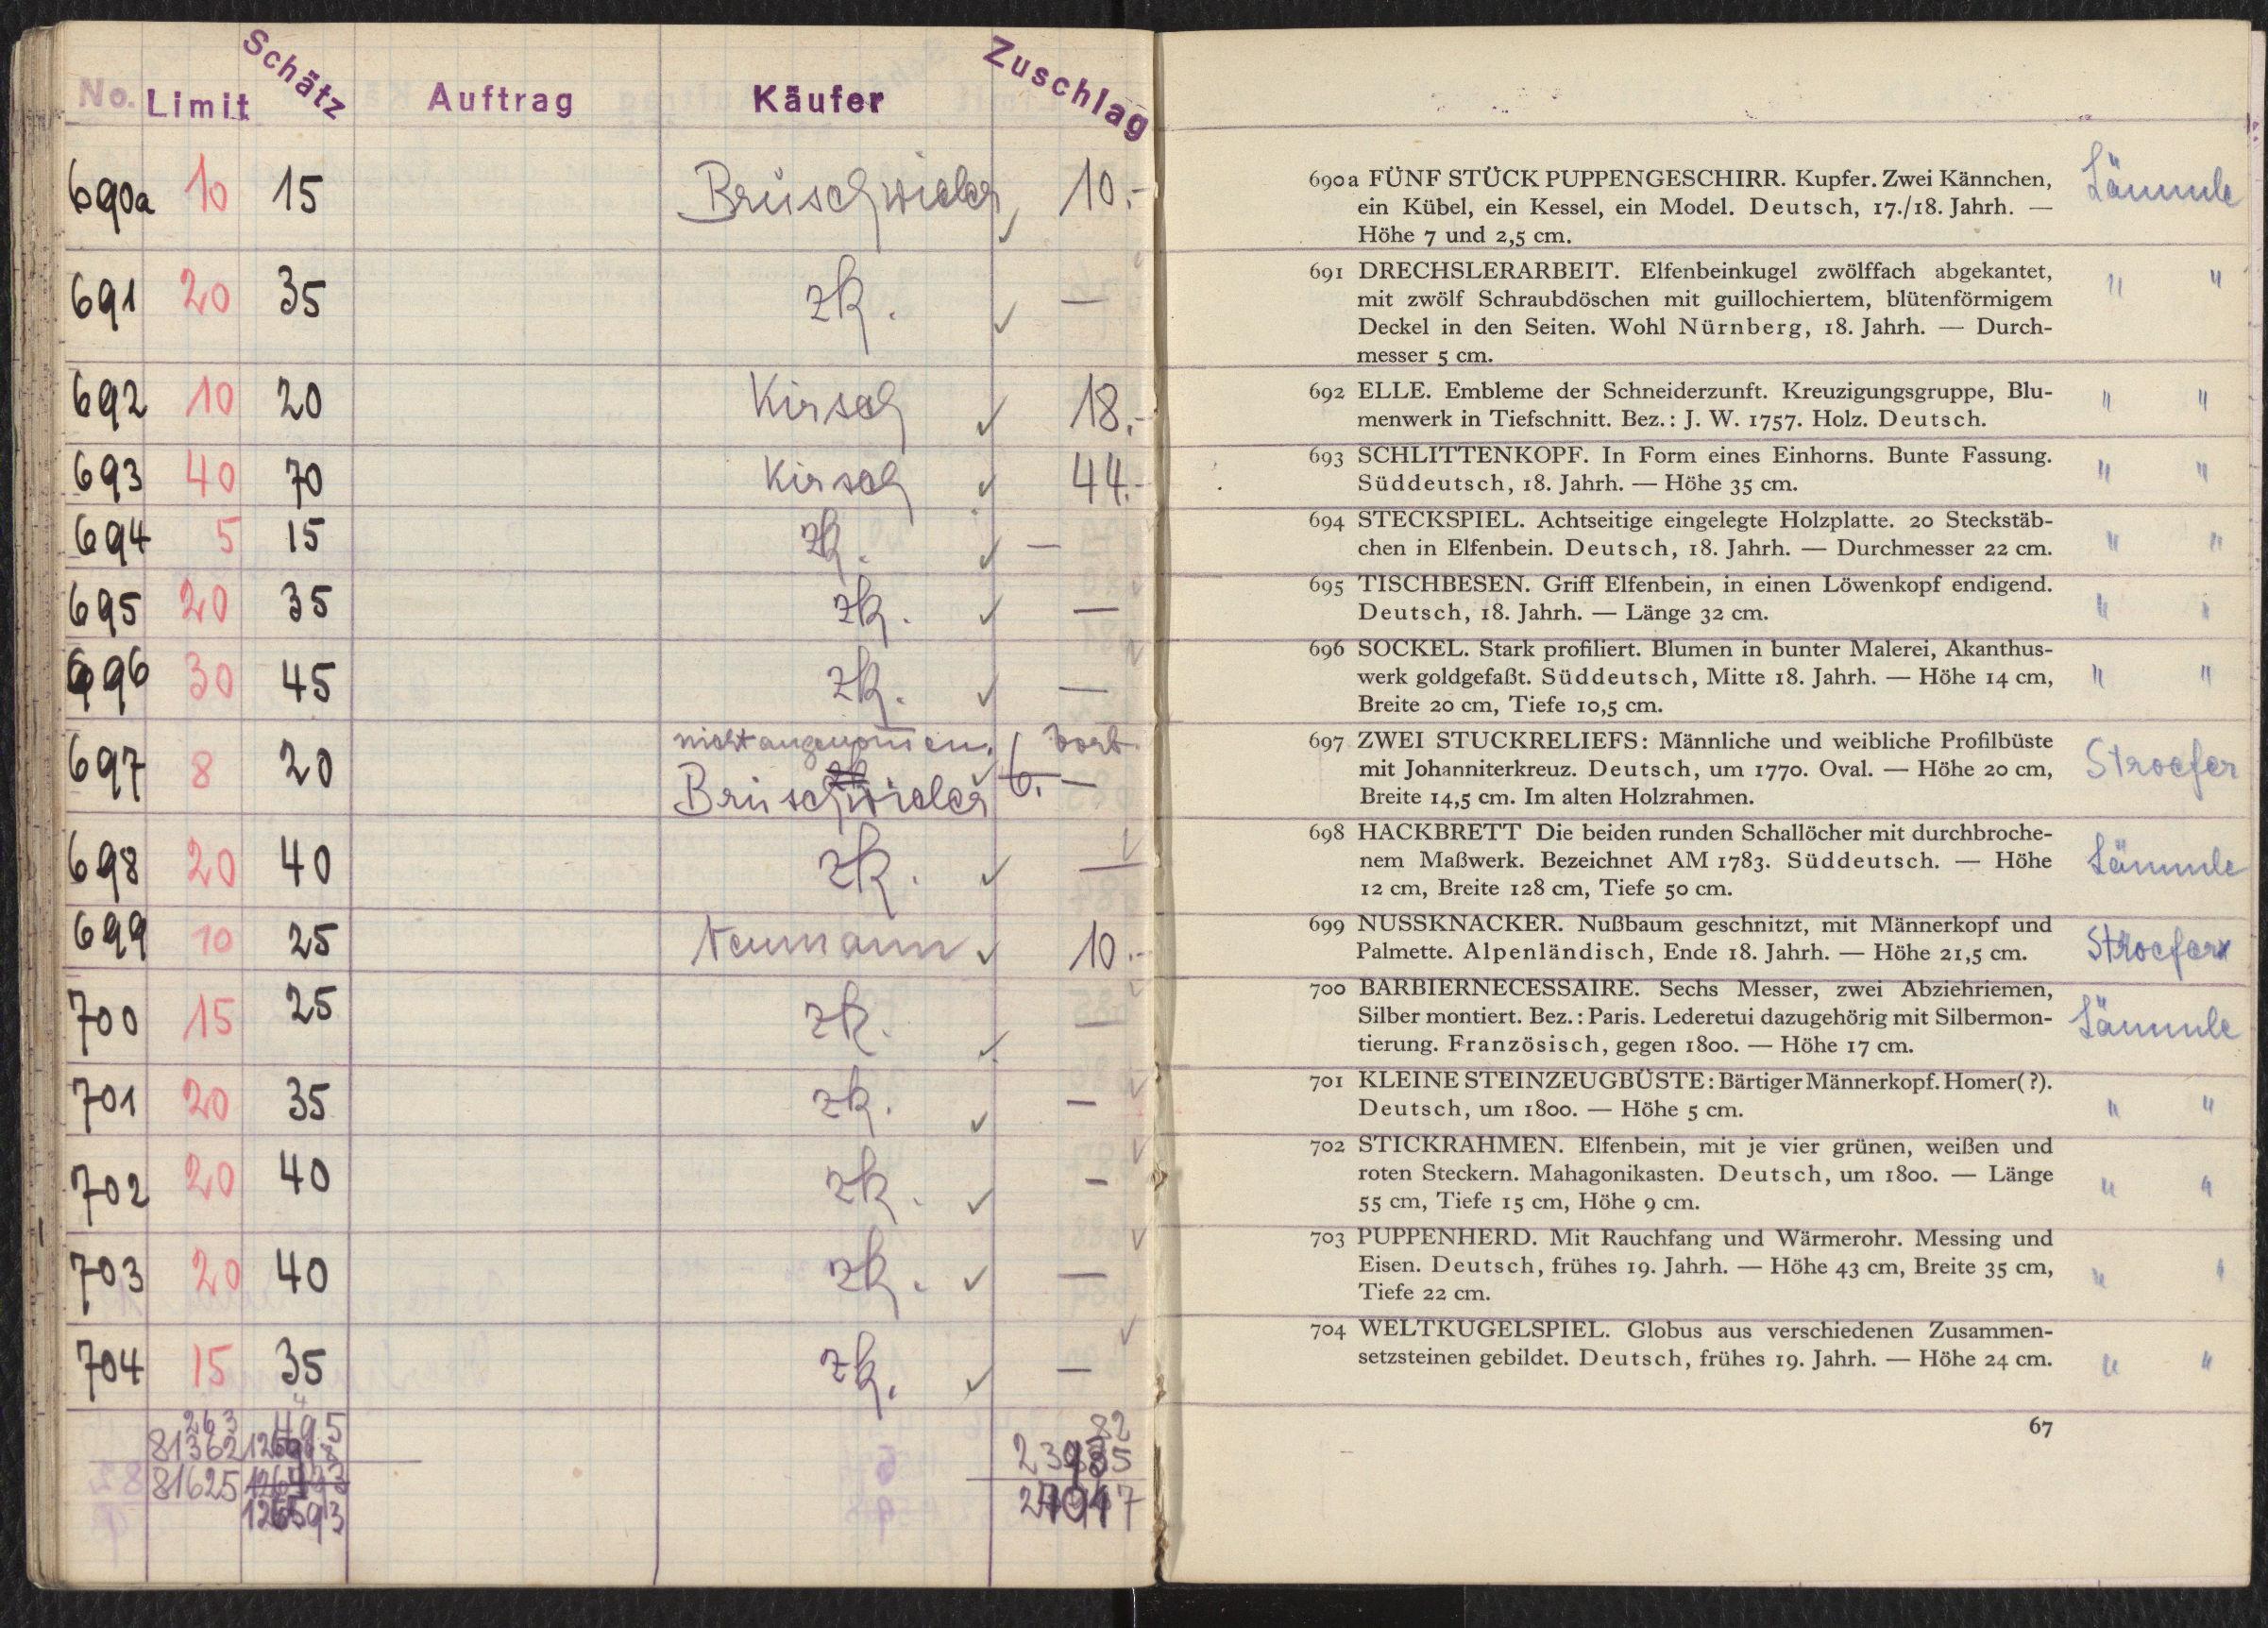 No. Limit Schätz Auftrag Käufer Zuschlag
690a 10 15 Brüschwieler 10.-
691 20 35 zk. —
692 10 20 Kirsch 18.-
693 40 70 Kirsch 44.-
694 5 15 zk. —
695 20 35 zk. —
696 30 45 zk. —
nicht angenommen. Vorb.
697 8 20 Brüschwieler 6.—
698 20 40 zk. —
699 10 25 Neumann 10.-
700 15 25 zk. —
701 20 35 zk. —
702 20 40 zk. —
703 20 40 zk. —
704 15 35 zk. —
263 495 82
81362
81625
690a FÜNF STÜCK PUPPENGESCHIRR. Kupfer. Zwei Kännchen, Lämmle
ein Kübel, ein Kessel, ein Model. Deutsch, 17./18. Jahrh. —
Höhe 7 und 2,5 cm.
691 DRECHSLERARBEIT. Elfenbeinkugel zwölffach abgekantet, " "
mit zwölf Schraubdöschen mit guillochiertem, blütenförmigem
Deckel in den Seiten. Wohl Nürnberg, 18. Jahrh. — Durch-
messer 5 cm.
692 ELLE. Embleme der Schneiderzunft. Kreuzigungsgruppe, Blu- " "
menwerk in Tiefschnitt. Bez.: J. W. 1757. Holz. Deutsch.
693 SCHLITTENKOPF. In Form eines Einhorns. Bunte Fassung. " "
Süddeutsch, 18. Jahrh. — Höhe 35 cm.
694 STECKSPIEL. Achtseitige eingelegte Holzplatte. 20 Steckstäb- " "
chen in Elfenbein. Deutsch, 18. Jahrh. — Durchmesser 22 cm.
695 TISCHBESEN. Griff Elfenbein, in einen Löwenkopf endigend. " "
Deutsch, 18. Jahrh. — Länge 32 cm.
696 SOCKEL. Stark profiliert. Blumen in bunter Malerei, Akanthus- " "
werk goldgefaßt. Süddeutsch, Mitte 18. Jahrh. — Höhe 14 cm,
Breite 20 cm, Tiefe 10,5 cm.
697 ZWEI STUCKRELIEFS: Männliche und weibliche Profilbüste Stroefer
mit Johanniterkreuz. Deutsch, um 1770. Oval. — Höhe 20 cm,
Breite 14,5 cm. Im alten Holzrahmen.
698 HACKBRETT Die beiden runden Schallöcher mit durchbroche- Lämmle
nem Maßwerk. Bezeichnet AM 1783. Süddeutsch. — Höhe
12 cm, Breite 128 cm, Tiefe 50 cm.
699 NUSSKNACKER. Nußbaum geschnitzt, mit Männerkopf und Stroefer
Palmette. Alpenländisch, Ende 18. Jahrh. — Höhe 21,5 cm.
700 BARBIERNECESSAIRE. Sechs Messer, zwei Abziehriemen, Lämmle
Silber montiert. Bez.: Paris. Lederetui dazugehörig mit Silbermon-
tierung. Französisch, gegen 1800. — Höhe 17 cm.
701 KLEINE STEINZEUGBÜSTE: Bärtiger Männerkopf. Homer(?). " "
Deutsch, um 1800. — Höhe 5 cm.
702 STICKRAHMEN. Elfenbein, mit je vier grünen, weißen und " "
roten Steckern. Mahagonikasten. Deutsch, um 1800. — Länge
55 cm, Tiefe 15 cm, Höhe 9 cm.
703 PUPPENHERD. Mit Rauchfang und Wärmerohr. Messing und " "
Eisen. Deutsch, frühes 19. Jahrh. — Höhe 43 cm, Breite 35 cm,
Tiefe 22 cm.
704 WELTKUGELSPIEL. Globus aus verschiedenen Zusammen- " "
setzsteinen gebildet. Deutsch, frühes 19. Jahrh. — Höhe 24 cm.
67